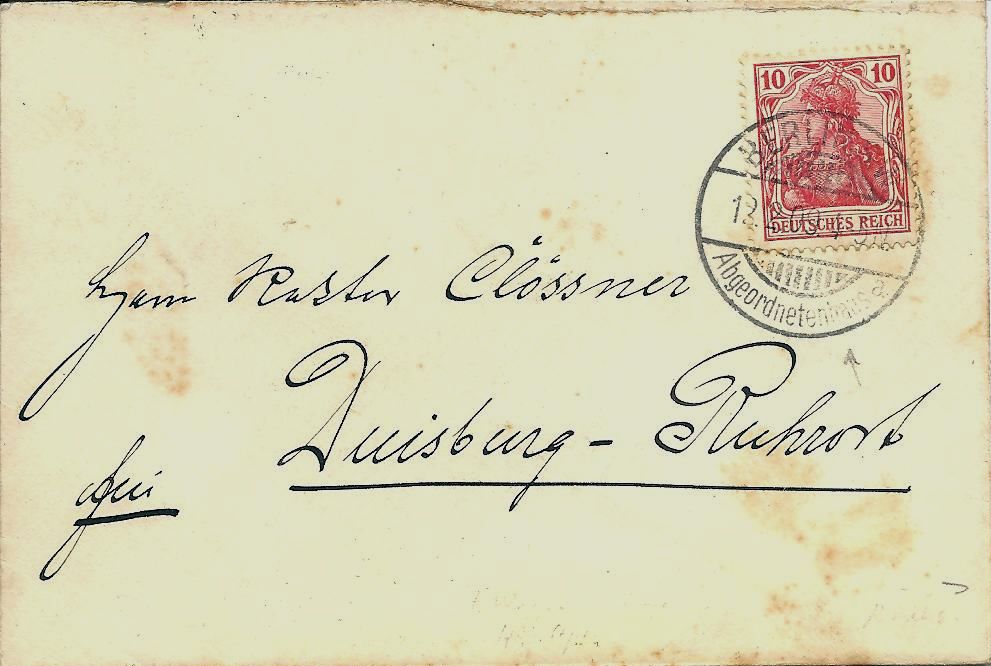 10 10
DEUTSCHES REICH
BERLIN
Abgeordnetenhaus a
Herrn Rektor Clössner
Duisburg - Ruhrort
frei